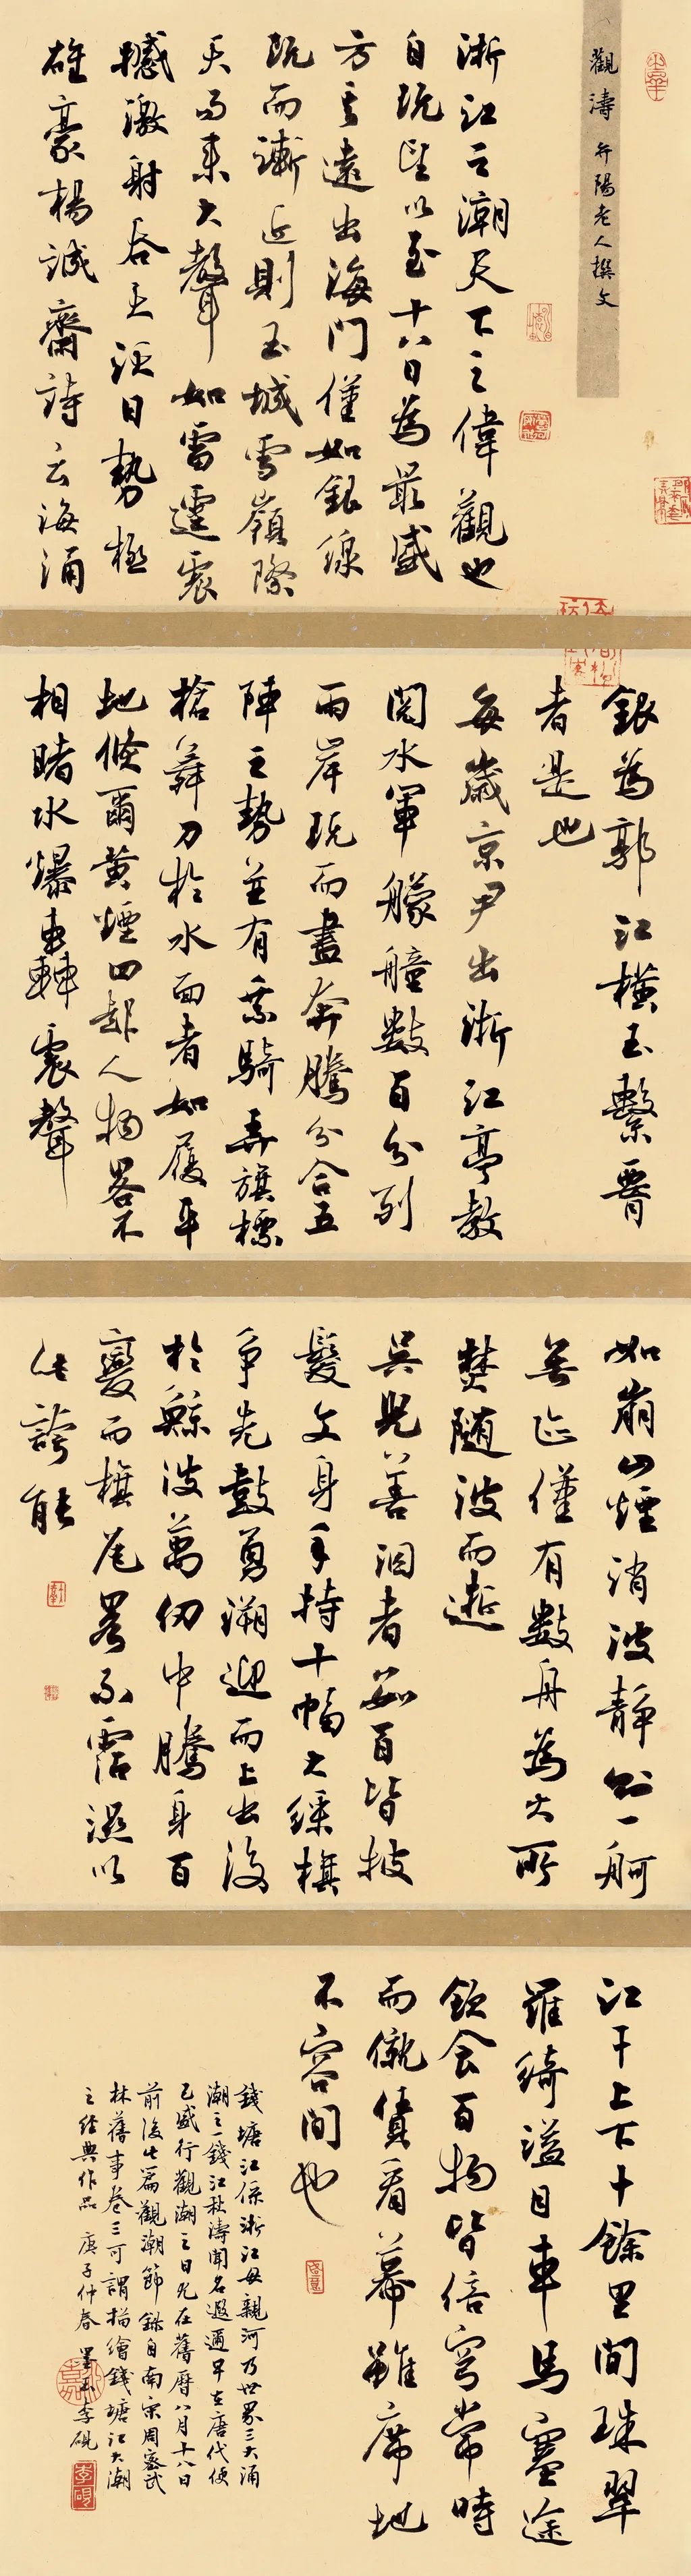 觀濤 弁陽老人撰文
浙江之潮天下之偉觀也
自既望以至十八日為最盛
方其遠出海門僅如銀線
既而漸近則玉城雪嶺際
天而來大聲如雷霆震
撼激射吞天沃日勢極
雄豪楊誠齋詩云海涌
銀為郭江橫玉繫腰
者是也
每歲京尹出浙江亭教
閱水軍艨艟數百分列
兩岸既而盡奔騰分合五
陣之勢並有乘騎弄旗標
槍舞刀於水面者如履平
地倏爾黃煙四起人物畧不
相睹水爆轟震聲
如崩山煙消波靜則一舸
無迹僅有數舟為火所
焚隨波而逝
吳兒善泅者數百皆披
髮文身手持十幅大綵旗
爭先鼓勇溯迎而上出沒
於鯨波萬仞中騰身百
變而旗尾畧不霑濕以
此誇能
江干上下十餘里間珠翠
羅綺溢目車馬塞途
飲食百物皆倍穹常時
而僦賃看幕雖席地
不容間也
錢塘江係浙江母親河乃世界三大涌
潮之一錢江秋濤聞名遐邇早在唐代便
已盛行觀潮之日尤在舊曆八月十八日
前後此篇觀潮節錄自南宋周密武
林舊事卷三可謂描繪錢塘江大潮
之經典作品 庚子仲春 墨玉李硯
李硯